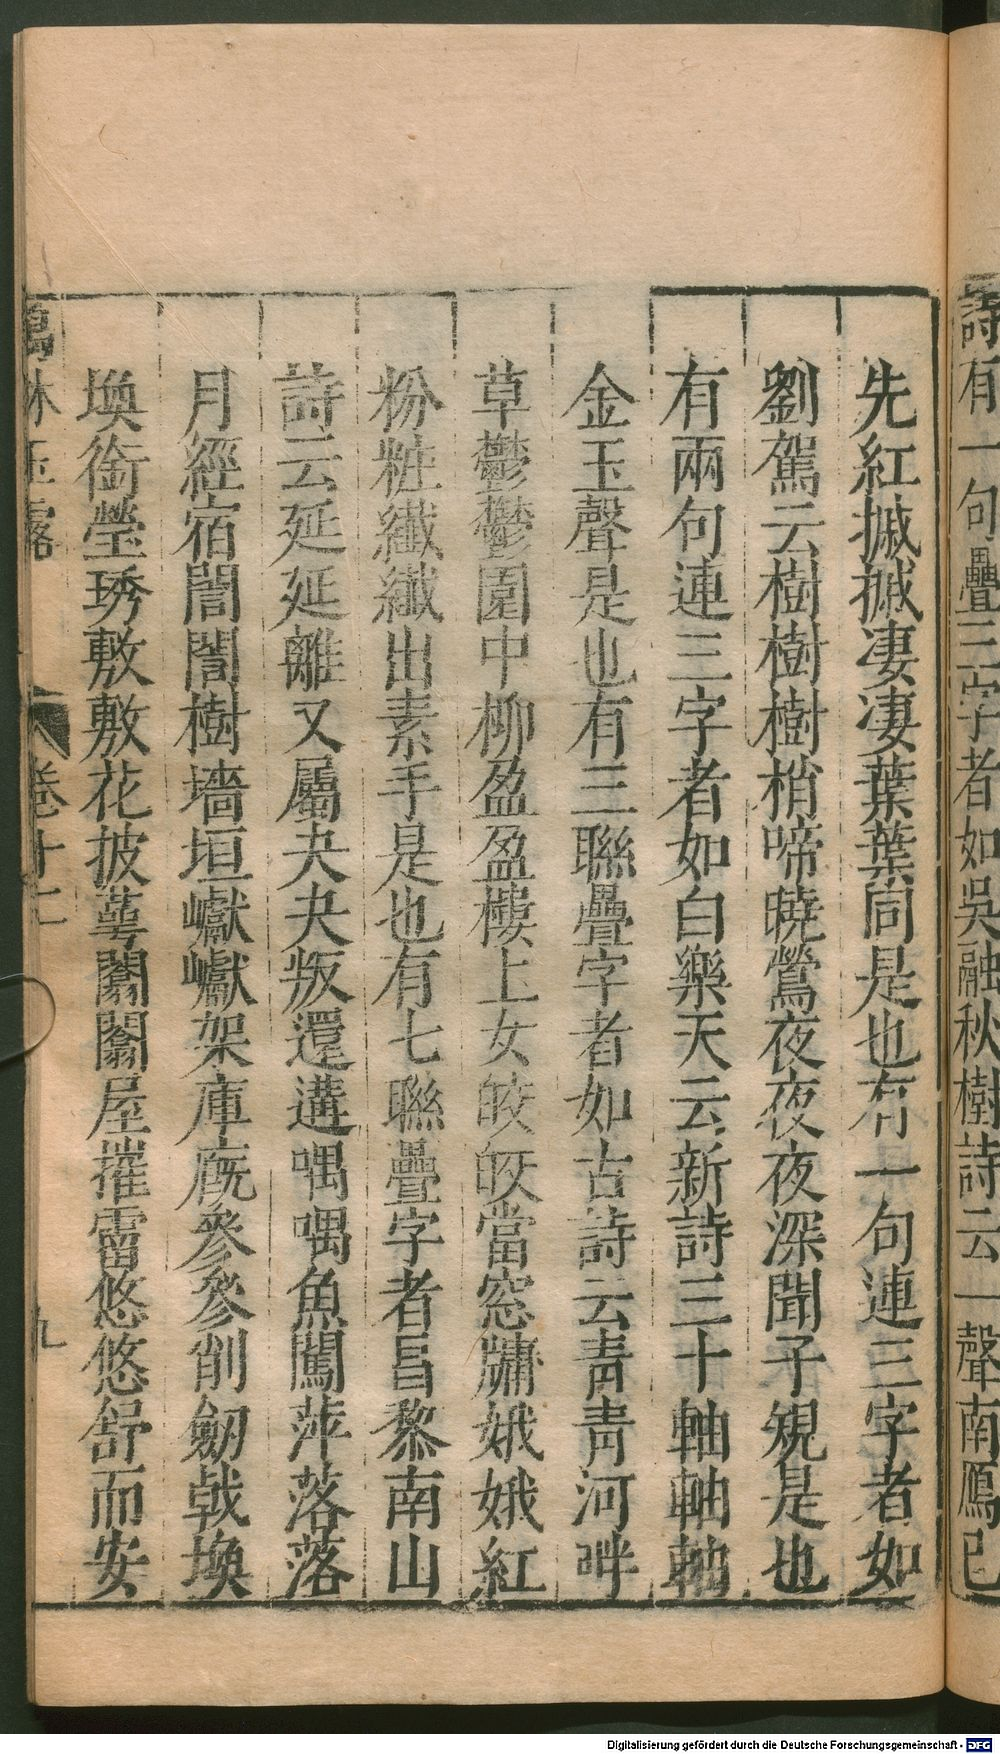 詩有一句疊三字者如吳融秋樹詩云一聲南鴈已
先紅摵摵凄凄葉葉同是也有一句連三字者如
劉駕云樹樹樹梢啼曉鶯夜夜夜深聞子規是也
有兩句連三字者如白樂天云新詩三十軸軸軸
金玉聲是也有三聯疊字者如古詩云青青河畔
草鬱鬱園中柳盈盈樓上女皎皎當窓牖娥娥紅
粉粧纖纖出素手是也有七聯疊字者昌黎南山
詩云延延離又屬夬夬叛還遘喁喁魚闖萍落落
月經宿誾誾樹墻垣巘巘架庫廐參參削劒戟煥
煥銜瑩琇敷敷花披萼闟闟屋摧霤悠悠舒而安
鶴林玉露 卷十二 九
Digitalisierung gefördert durch die Deutsche Forschungsgemeinschaft - DFG